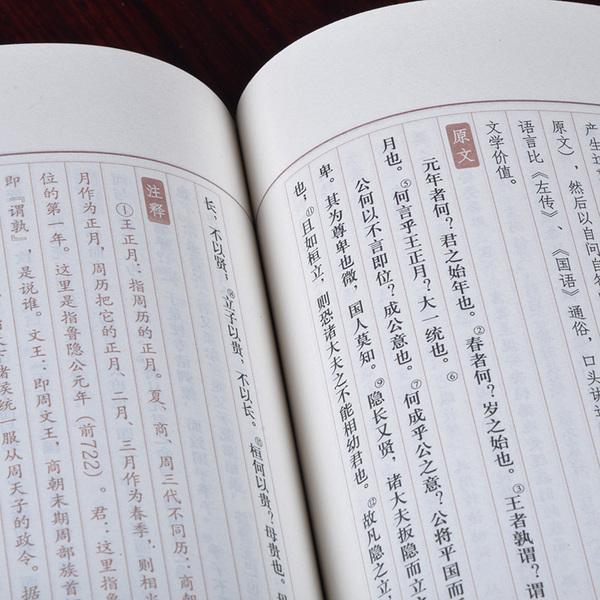 产生
原文），然后以自问自答
语言比《左传》、《国语》通俗，口头讲述
文学价值。
原文
元年者何？君之始年也。②春者何？岁之始也。③王者孰谓？谓
月也。⑤何言乎王正月？大一统也。⑥
公何以不言即位？成公意也。⑦何成乎公之意？公将平国而
卑。其为尊卑也微，国人莫知。⑨隐长又贤，诸大夫扳隐而立
也，⑪且如桓立，则恐诸大夫之不能相幼君也。⑫故凡隐之立
长，不以贤；立子以贵，不以长。桓何以贵？母贵也。
注释
①王正月：指周历的正月。夏、商、周三代不同历：商
月作为正月，周历把它的正月、二月、三月作为春季，则相
位的第一年。这里是指鲁隐公元年（前722）。君：这里指
即“谓孰”，是说谁。文王：即周文王，商朝末期周部族首
侯统一服从周天子的政令。据